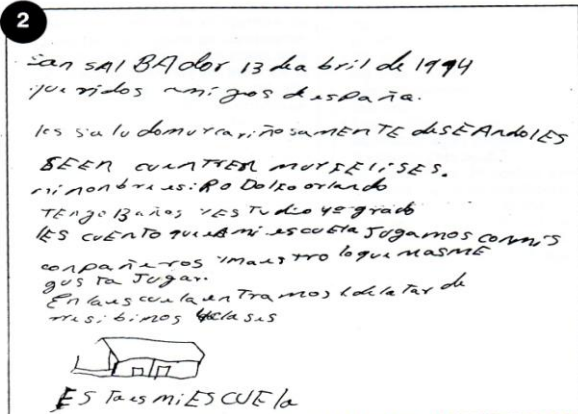 2
San sAlBAdor 13 dea bril de 1994
queridos amigos despaña.
les salu domuycariñosaMENTE desEAndolES
SEEN cuenTREN muyFElisES.
mi nonbre es: RoDolfo orlando
TEngo 13 años YESTudio 4º grado
lES cuENTo queEN mi escuEla JugaMos conMis
conpañeros ymaestro loque MASME
gusTa Jugar.
En laescuela enTraMos 1 delaTar de
resibiMos 4clases
ESTaesmiESCUEla